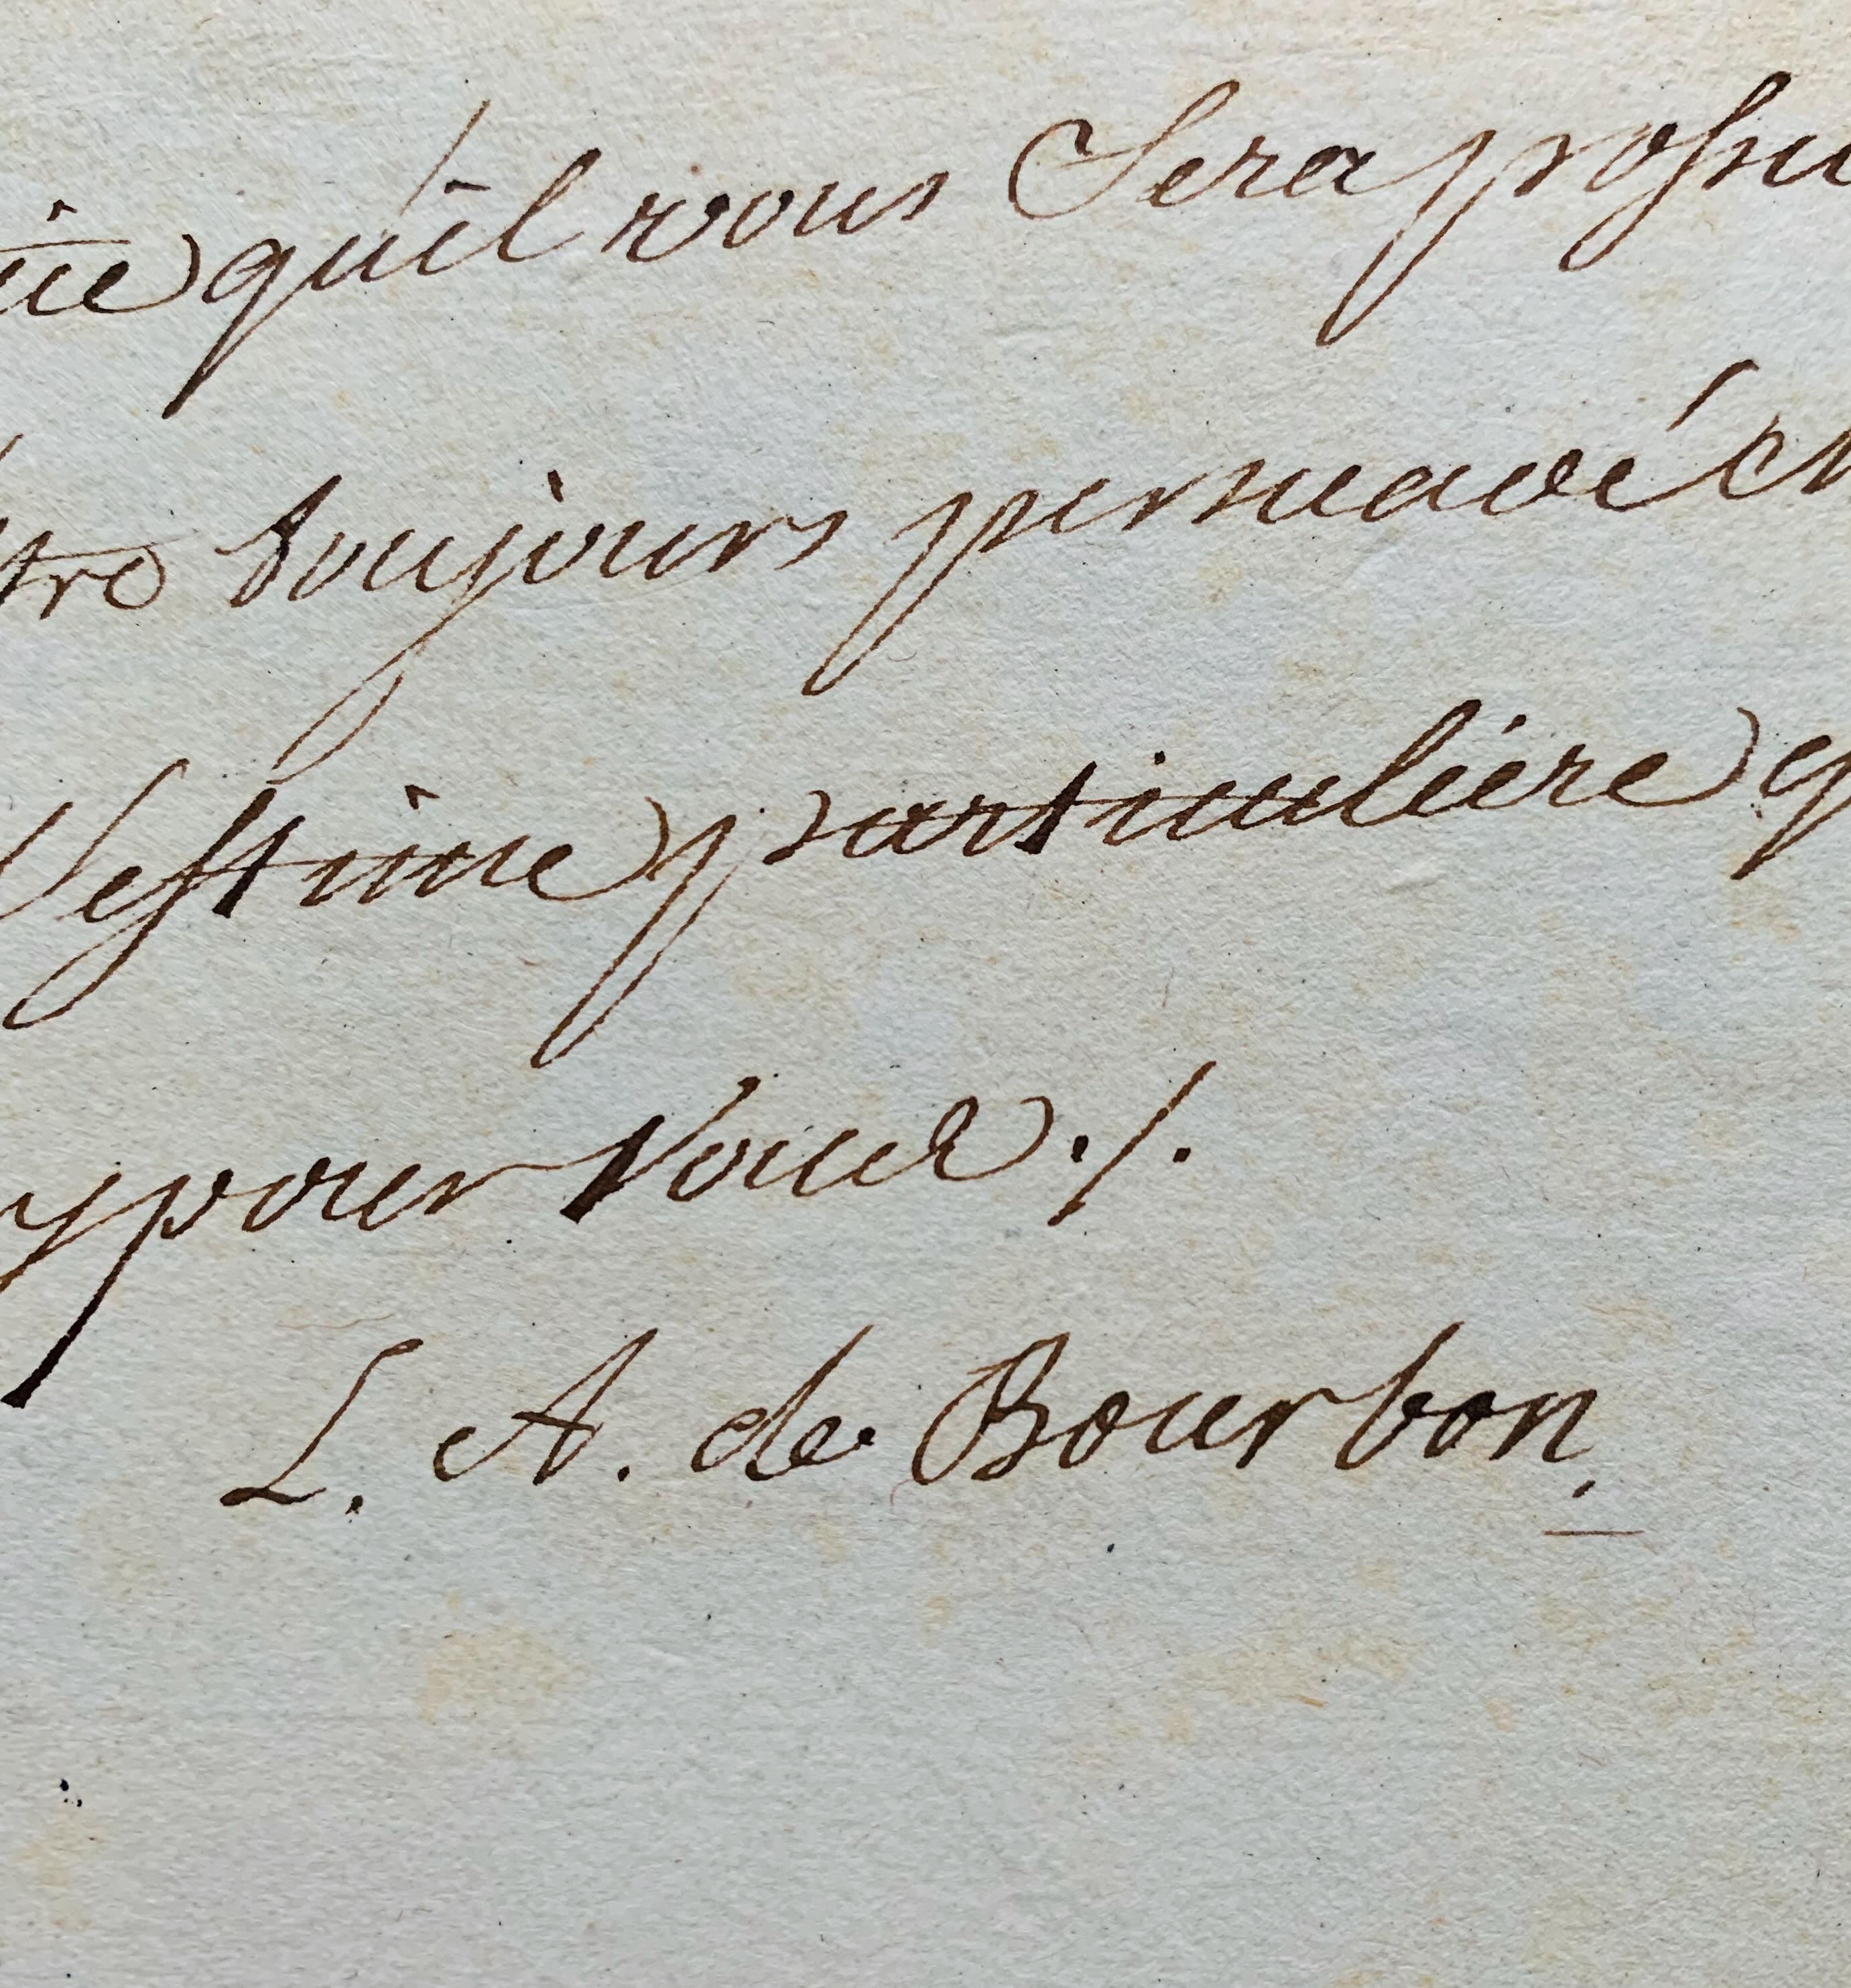 qu'il vous Sera
toujours persuadé
l'estime particuliére
pour Vous ./.
L. A. de Bourbon.